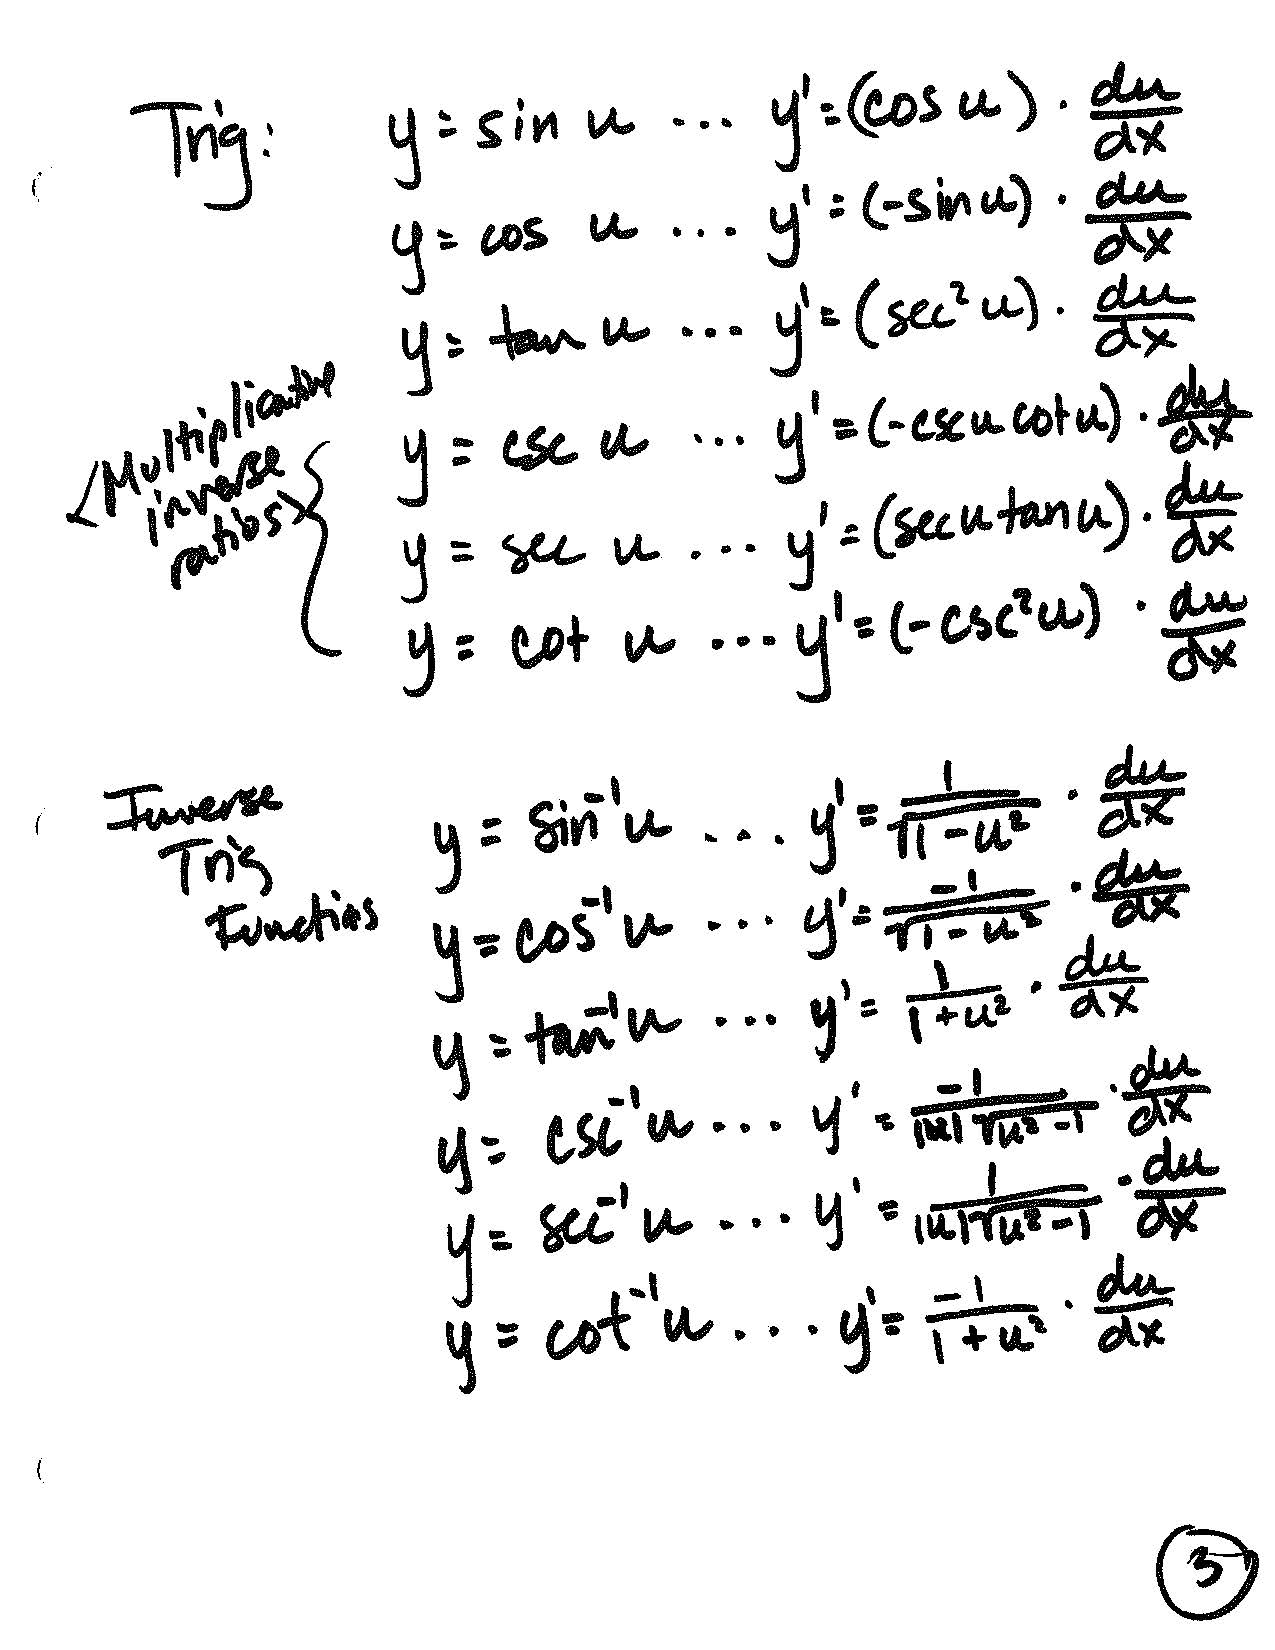 Trig: y = sin u ... y' = (cos u) · du/dx
y = cos u ... y' = (-sin u) · du/dx
y = tan u ... y' = (sec² u) · du/dx
<Multiplicative inverse ratios>
y = csc u ... y' = (-csc u cot u) · du/dx
y = sec u ... y' = (sec u tan u) · du/dx
y = cot u ... y' = (-csc² u) · du/dx
Inverse Trig Functions
y = sin⁻¹ u ... y' = 1/√(1-u²) · du/dx
y = cos⁻¹ u ... y' = -1/√(1-u²) · du/dx
y = tan⁻¹ u ... y' = 1/(1+u²) · du/dx
y = csc⁻¹ u ... y' = -1/(|u|√(u²-1)) · du/dx
y = sec⁻¹ u ... y' = 1/(|u|√(u²-1)) · du/dx
y = cot⁻¹ u ... y' = -1/(1+u²) · du/dx
3